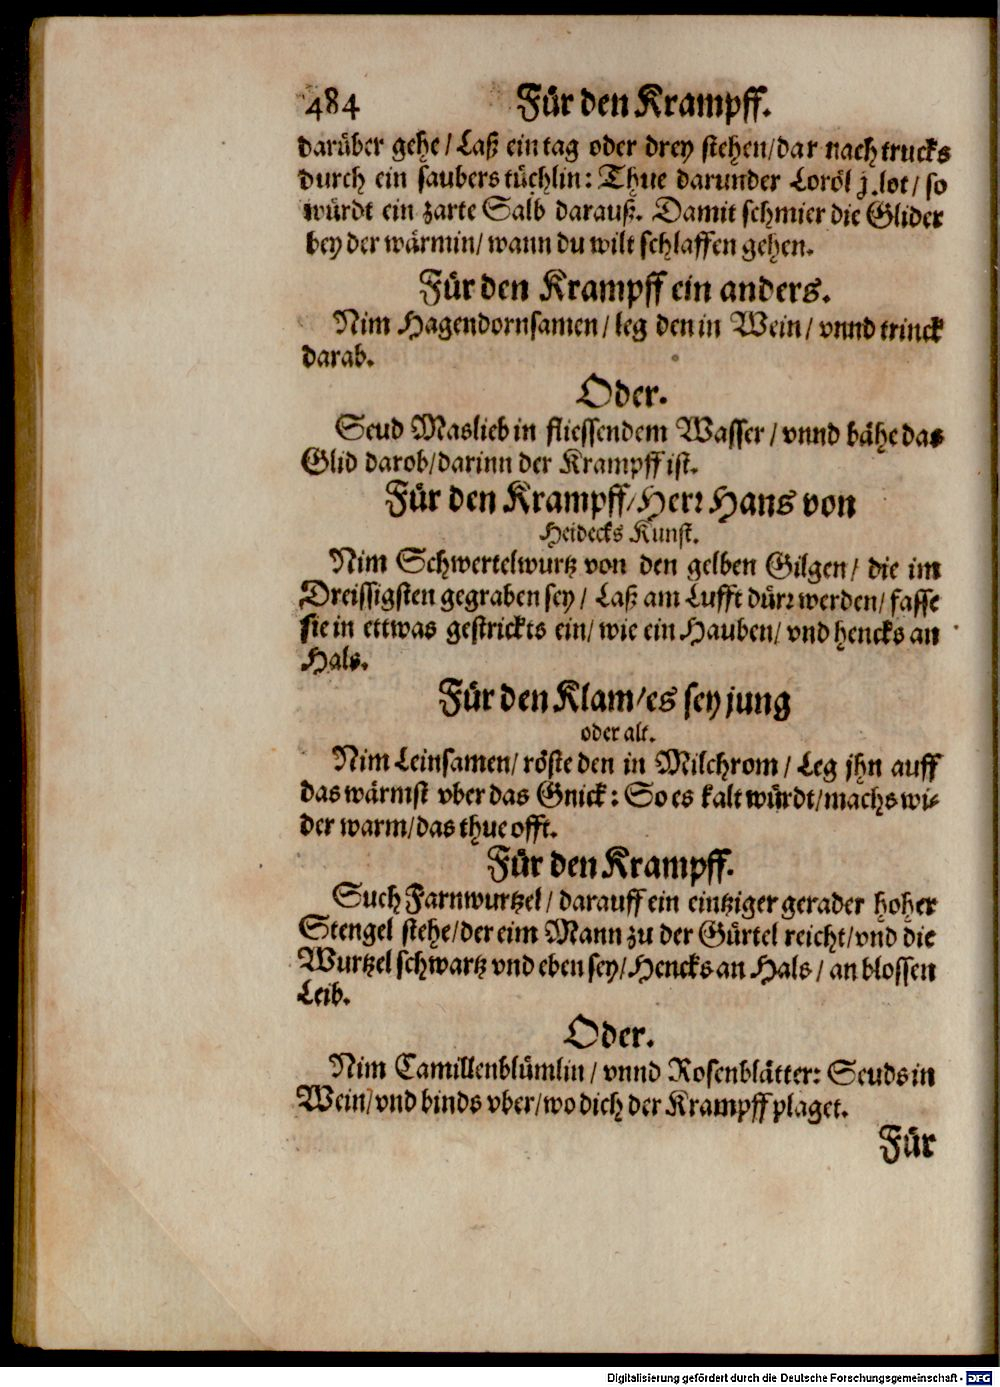 484 Für den Krampff.
darüber gehe / Laß ein tag oder drey stehen / dar nach trucks
durch ein saubers tüchlin: Thue darunder Loröl j. lot / so
würdt ein zarte Salb darauß. Damit schmier die Glider
bey der wärmin / wann du wilt schlaffen gehen.
Für den Krampff ein anders.
Nim Hagendornsamen / leg den in Wein / vnnd trinck
darab.
Oder.
Seud Maslieb in fliessendem Wasser / vnnd bähe das
Glid darob / darinn der Krampff ist.
Für den Krampff / Herr Hans von
Heidecks Kunst.
Nim Schwertelwurtz von den gelben Gilgen / die im
Dreissigsten gegraben sey / Laß am Lufft dürr werden / fasse
sie in ettwas gestrickts ein / wie ein Hauben / vnd hencks an
Hals.
Für den Klam / es sey jung
oder alt.
Nim Leinsamen / röste den in Milchrom / Leg jhn auff
das wärmst vber das Gnick: So es kalt würdt / machs wi-
der warm / das thue offt.
Für den Krampff.
Such Farnwurtzel / darauff ein eintziger gerader hoher
Stengel stehe / der eim Mann zu der Gürtel reicht / vnd die
Wurtzel schwartz vnd eben sey / Hencks an Hals / an blossen
Leib.
Oder.
Nim Camillenblümlin / vnnd Rosenblätter: Seuds in
Wein / vnd binds vber / wo dich der Krampff plaget.
Für
Digitalisierung gefördert durch die Deutsche Forschungsgemeinschaft - DFG